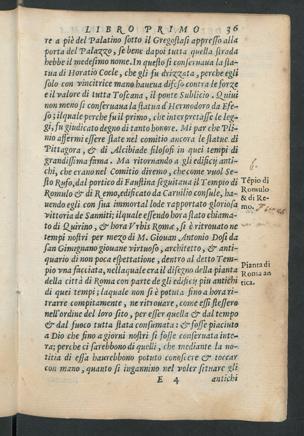 LIBRO PRIMO 36
re a piè del Palatino sotto il Gregostasi appresso alla
porta del Palazzo, se bene dapoi tutta quella strada
hebbe il medesimo nome. In questo si conseruaua la sta-
tua di Horatio Cocle, che gli fu drizzata, perche egli
solo con vincitrice mano haueua difeso contra le forze
e il valore di tutta Toscana, il ponte Sublicio. Quiui
non meno si conseruaua la statua d'Hermodoro da Efe-
so; il quale perche fu il primo, che interpretasse le leg-
gi, fu giudicato degno di tanto honore. Mi par che Pli-
nio affermi essere state nel comitio ancora le statue di
Pittagora, & di Alcibiade filosofi in quei tempi di
grandissima fama. Ma ritornando a gli edificij anti-
chi, che erano nel Comitio diremo, che come vuol Se-
sto Rufo, dal portico di Faustina seguitaua il Tempio di
Romolo & di Remo, edificato da Carnilio consule, ha-
uendo egli con sua immortal lode rapportato gloriosa
vittoria de Sanniti; il quale essendo hora stato chiama-
to di Quirino, & hora Vrbis Roma, si è ritrouato ne
tempi nostri per mezo di M. Giouan, Antonio Dosi da
san Gimignano giouane virtuoso, architetto, & anti-
quario di non poca espettatione, dentro al detto Tem-
pio vna facciata, nella quale era il disegno della pianta
della città di Roma con parte de gli edificij piu antichi
di quei tempi; laquale non si è potuta fino a hora ri-
trarre compitamente, ne ritrouare, come essi stessero
nell'ordine del loro sito, per esser quella & dal tempo
& dal fuoco tutta stata consumata: & fosse piaciuto
a Dio che sino a giorni nostri si fosse conseruata inte-
ra; perche ci sarebbono di quelli, che mediante la no-
titia di essa haurebbono potuto conoscere & toccar
con mano, quanto si ingannino nel voler situare gli
E 4 antichi
6.
Tẽpio di
Romulo
& di Re-
mo.
Pianta di
Roma an
tica.